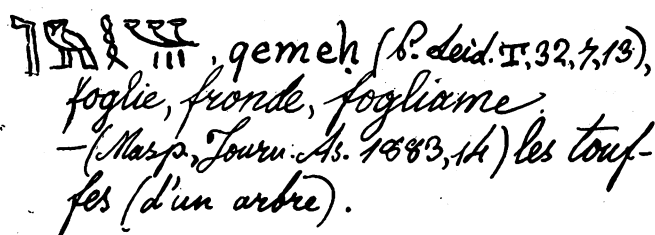 , qemeḥ (P. Leid. I, 32, 7, 13),
foglie, fronde, fogliame.
—(Masp., Journ. As. 1883, 14) les touf-
fes (d'un arbre).